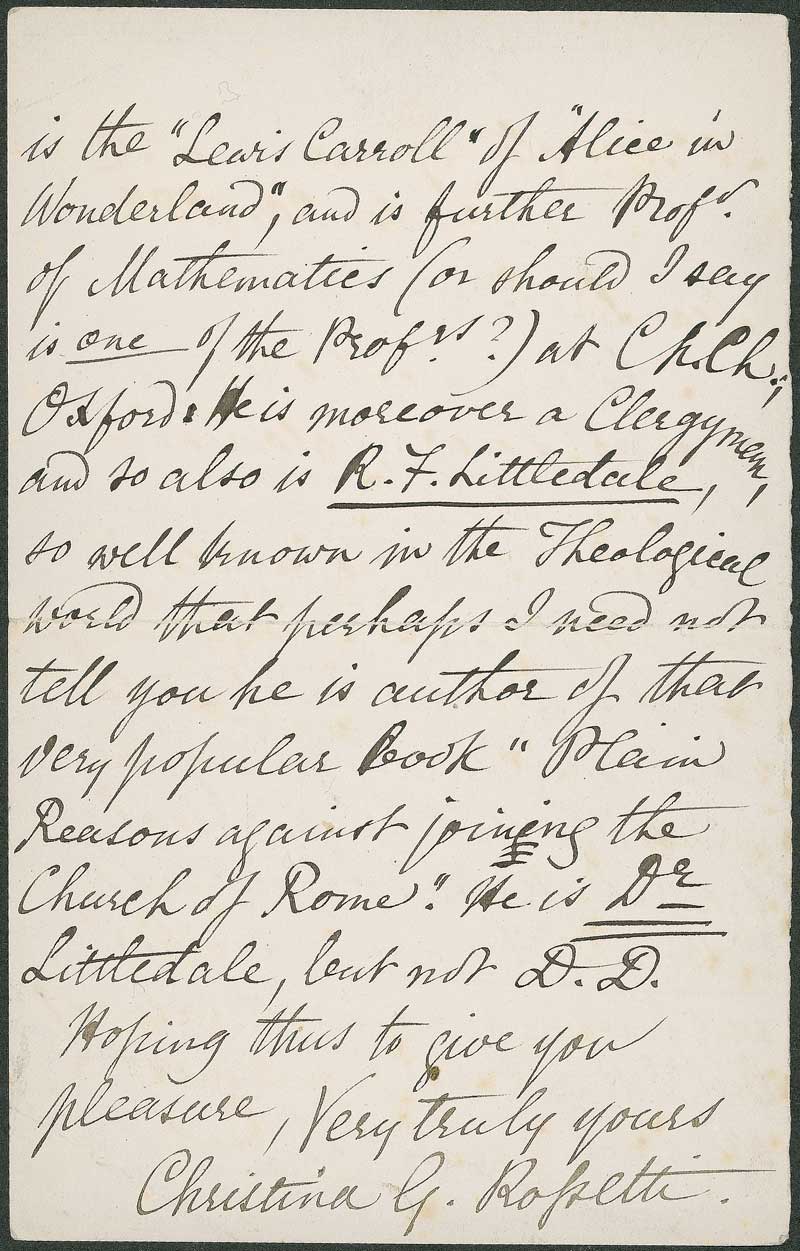 is the "Lewis Carroll" of "Alice in
Wonderland", and is further Profr.
of Mathematics (or should I say
is one of the Profrs?) at Ch. Ch.,
Oxford: He is moreover a Clergyman,
and so also is R. F. Littledale,
so well known in the Theological
world that perhaps I need not
tell you he is author of that
very popular book "Plain
Reasons against joining the
Church of Rome". He is Dr
Littledale, but not D. D.
Hoping thus to give you
pleasure, Very truly yours
Christina G. Rossetti.